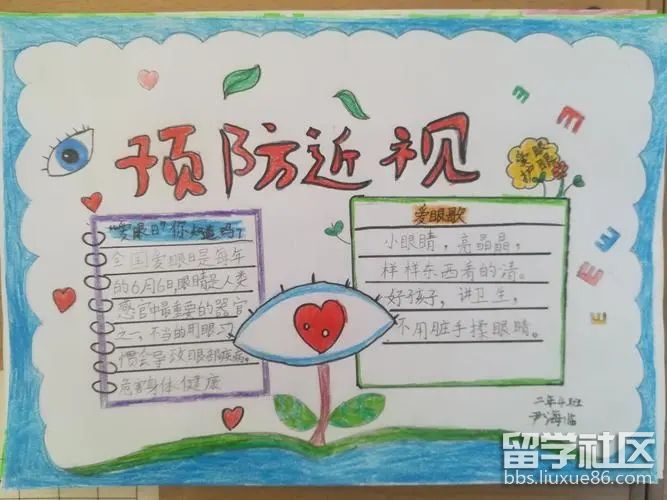 预防近视
"爱眼日"你知道吗?
全国爱眼日是每年
的6月6日,眼睛是人类
感官中最重要的器官
之一,不当的用眼习
惯会导致眼部疾病。
危害身体健康
爱眼歌
小眼睛,亮晶晶,
样样东西看的清。
好孩子,讲卫生,
不用脏手揉眼睛。
E
E
E
E
E
E
二年4班
尹海
留学社区
bbs.liuxue86.com